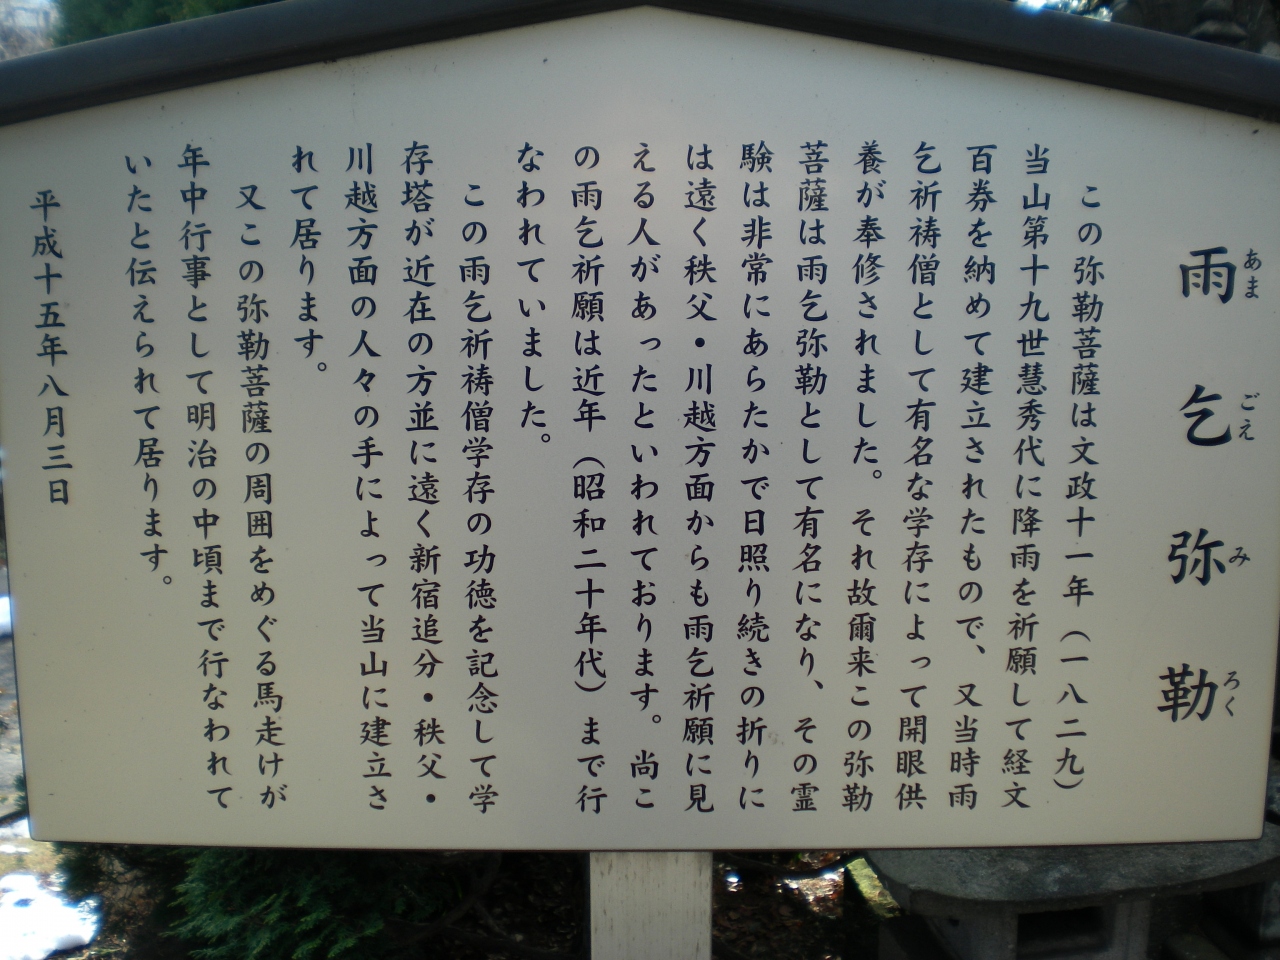 雨乞弥勒
あまごえみろく
この弥勒菩薩は文政十一年（一八二九）
当山第十九世慧秀代に降雨を祈願して経文
百券を納めて建立されたもので、又当時雨
乞祈祷僧として有名な学存によって開眼供
養が奉修されました。それ故爾来この弥勒
菩薩は雨乞弥勒として有名になり、その霊
験は非常にあらたかで日照り続きの折りに
は遠く秩父・川越方面からも雨乞祈願に見
える人があったといわれております。尚こ
の雨乞祈願は近年（昭和二十年代）まで行
なわれていました。
この雨乞祈祷僧学存の功徳を記念して学
存塔が近在の方並に遠く新宿追分・秩父・
川越方面の人々の手によって当山に建立さ
れて居ります。
又この弥勒菩薩の周囲をめぐる馬走けが
年中行事として明治の中頃まで行なわれて
いたと伝えられて居ります。
平成十五年八月三日